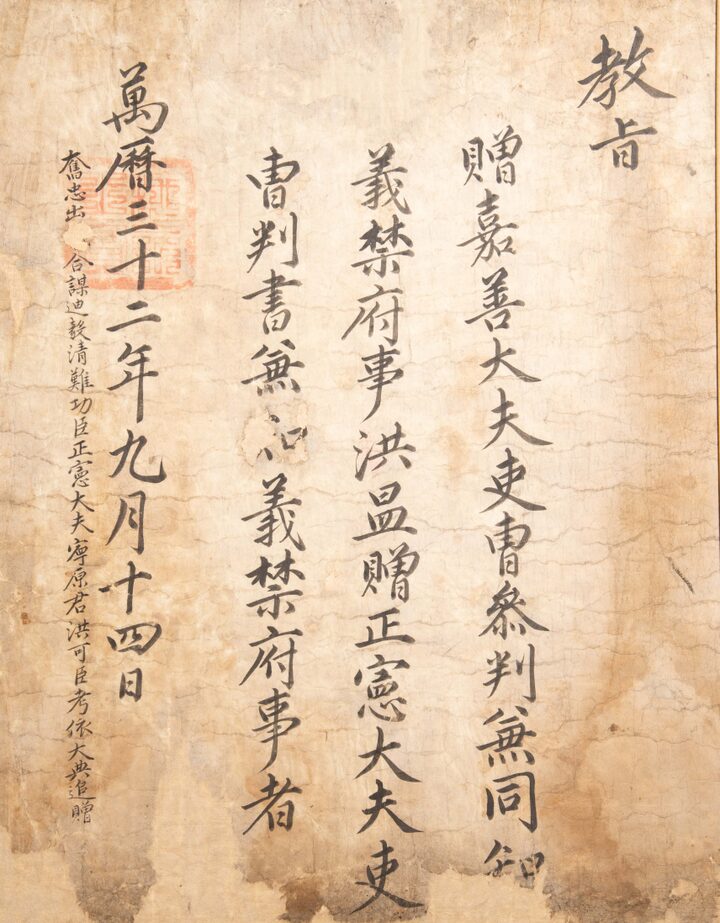 教旨
贈嘉善大夫吏曹叅判兼同知
義禁府事洪昷贈正憲大夫吏
曹判書兼知義禁府事者
萬曆三十二年九月十四日
奮忠出合謀迪毅清難功臣正憲大夫寧原君洪可臣考依大典追贈